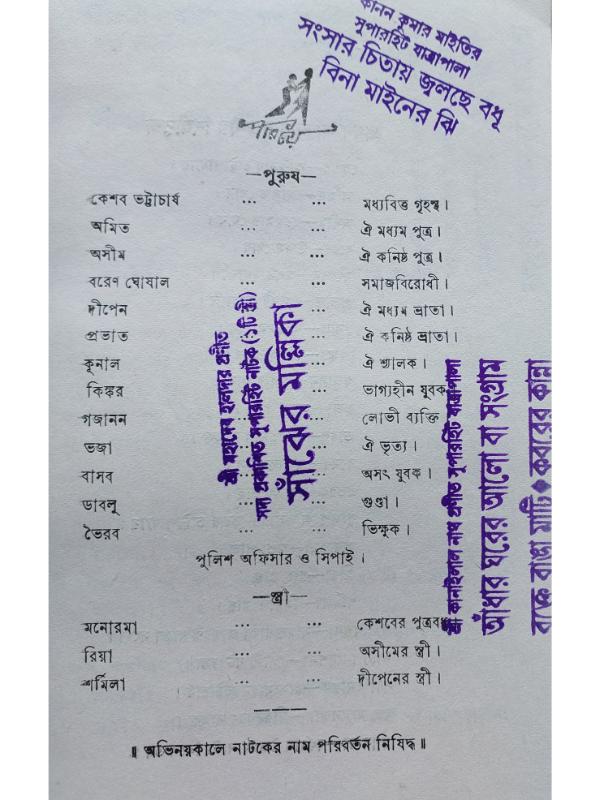 কানন কুমার মাইতির
সুপারহিট যাত্রাপালা
সংসার চিতায় জ্বলছে বধূ
বিনা মাইনের ঝি
পরিচয়
—পুরুষ—
কেশব ভট্টাচার্য ... ... মধ্যবিত্ত গৃহস্থ।
অমিত ... ... ঐ মধ্যম পুত্র।
অসীম ... ... ঐ কনিষ্ঠ পুত্র।
বরেণ ঘোষাল ... ... সমাজবিরোধী।
দীপেন ... ঐ মধ্যম ভ্রাতা।
প্রভাত ... ঐ কনিষ্ঠ ভ্রাতা।
কুনাল ... ঐ শ্যালক।
কিঙ্কর ... ভাগ্যহীন যুবক
গজানন ... লোভী ব্যক্তি
ভজা ... ঐ ভৃত্য।
বাসব ... অসৎ যুবক।
ডাবলু ... ... গুণ্ডা।
ভৈরব ... ... ভিক্ষুক।
পুলিশ অফিসার ও সিপাই।
—স্ত্রী—
মনোরমা ... ... কেশবের পুত্রবধূ।
রিয়া ... ... অসীমের স্ত্রী।
শর্মিলা ... ... দীপেনের স্ত্রী।
॥ অভিনয়কালে নাটকের নাম পরিবর্তন নিষিদ্ধ ॥
শ্রী মহাদেব হালদার প্রণীত
সদ্য প্রকাশিত সুপারহিট নাটক (১টি স্ত্রী)
সাঁঝের মল্লিকা
শ্রী কানাইলাল নাথ প্রণীত সুপারহিট যাত্রাপালা
আঁধার ঘরের আলো বা সংগ্রাম
রক্তে রাঙা মাটি ♦ কবরের কান্না